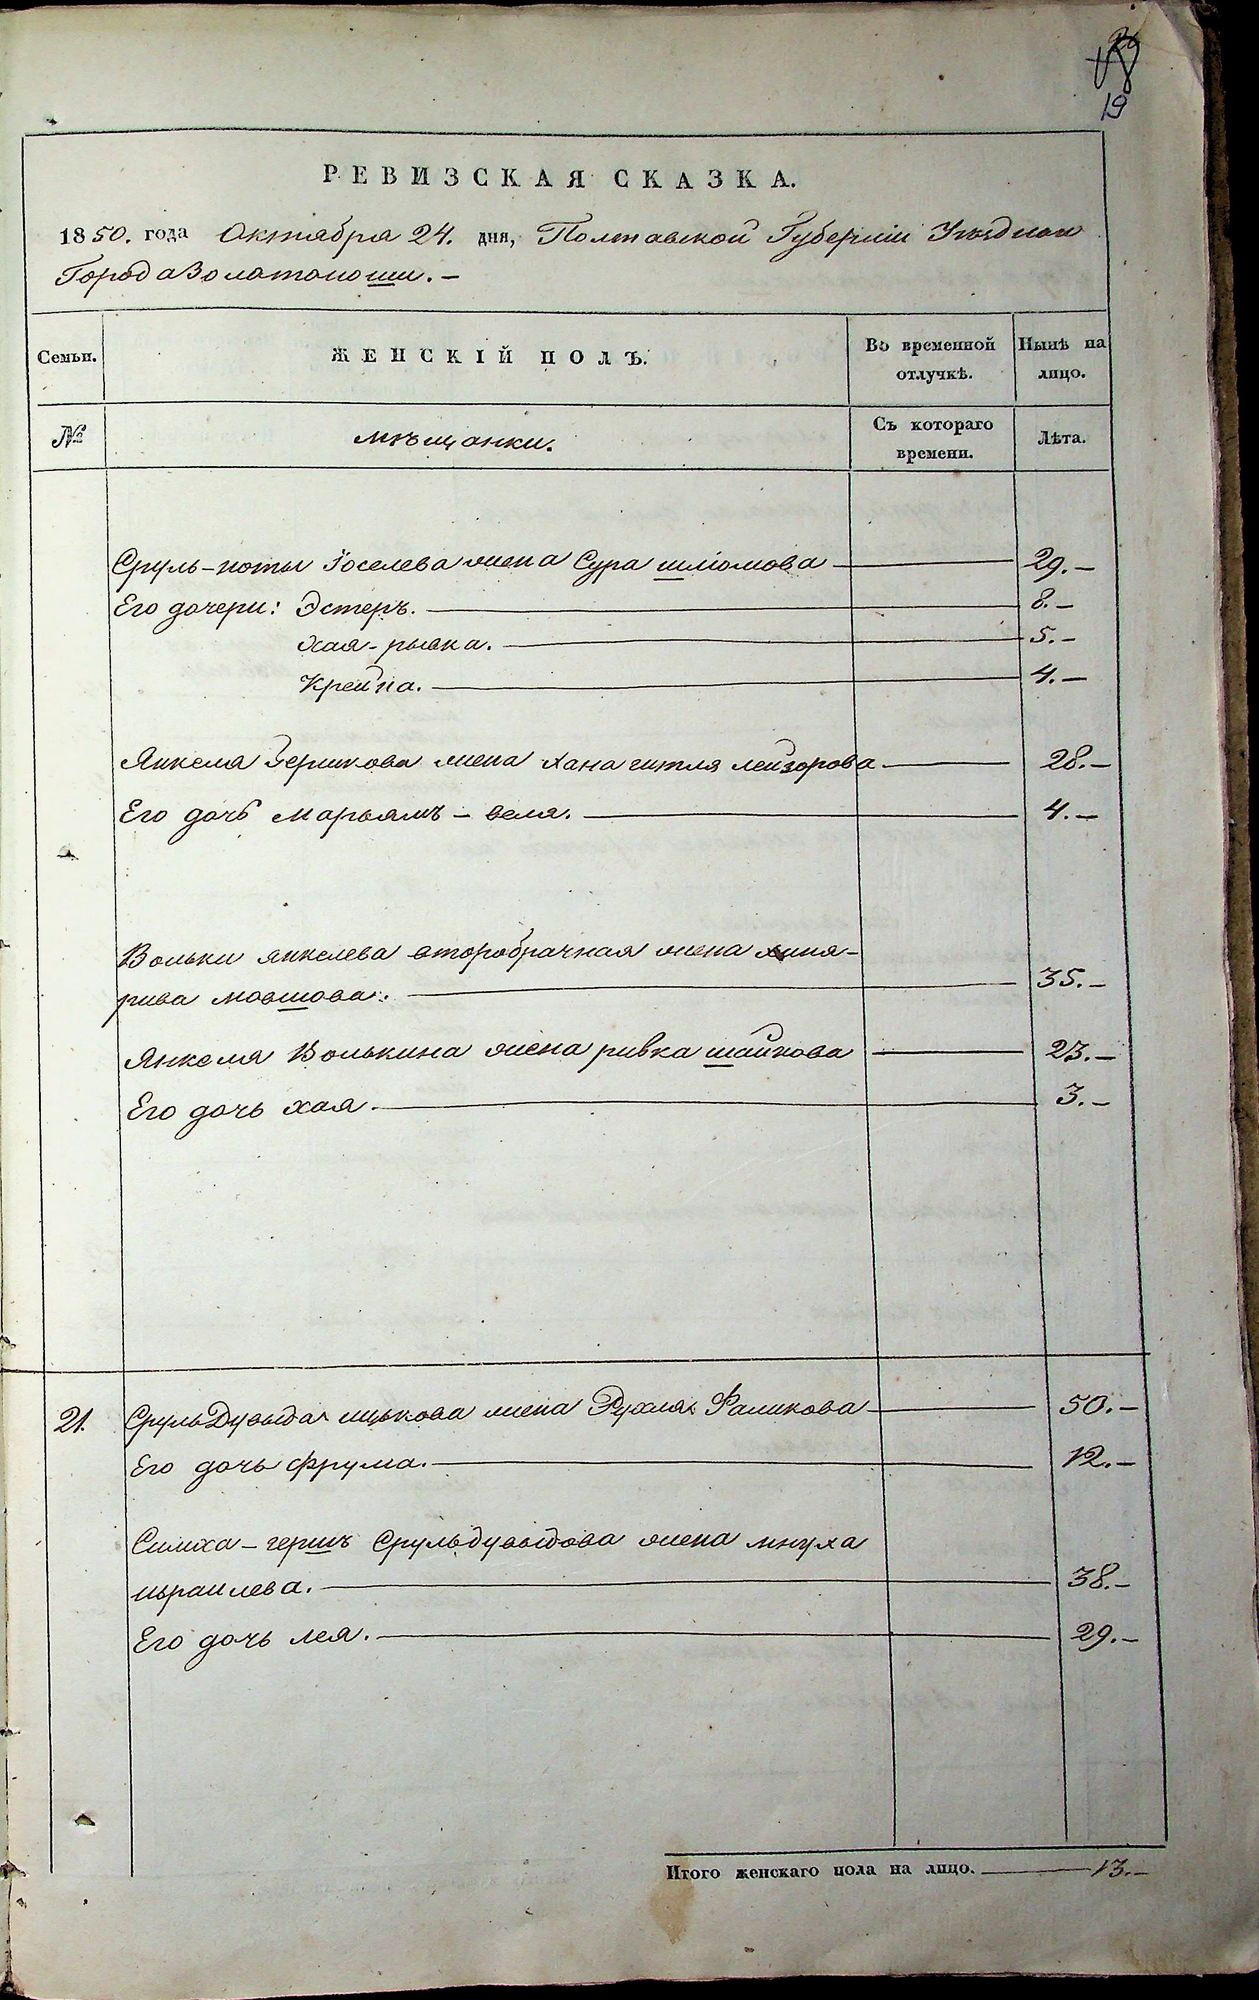 19
РЕВИЗСКАЯ СКАЗКА.
1850. года Октября 24. дня, Полтавской Губерніи Уѣзднаго
Города Золотоноши. —
Семьи. ЖЕНСКІЙ ПОЛЪ. Во временной отлучкѣ. Нынѣ на лицо.
№ мѣщанки. Съ котораго времени. Лѣта.
Сруль-ноты Іоселева жена Сура шліомова 29. —
Его дочери: Эстеръ. 8. —
Хая-рывка. 5. —
Крейна. 4. —
Янкеля Гершкова жена хана гитля лейзорова 28. —
Его дочь марьямъ - веля. 4. —
Вольки янкелева второбрачная жена хиня-
рива мовшова. 35. —
Янкеля Волькина жена ривка шайкова 23. —
Его дочь хая. 3. —
21. Сруль Дувыда ицькова жена Рухля Фаликова 50. —
Его дочь Фрума. 12. —
Симха - гершъ Срульдувыдова жена мнуха
израилева. 38. —
Его дочь лея. 29. —
Итого женскаго пола на лицо. 13. —